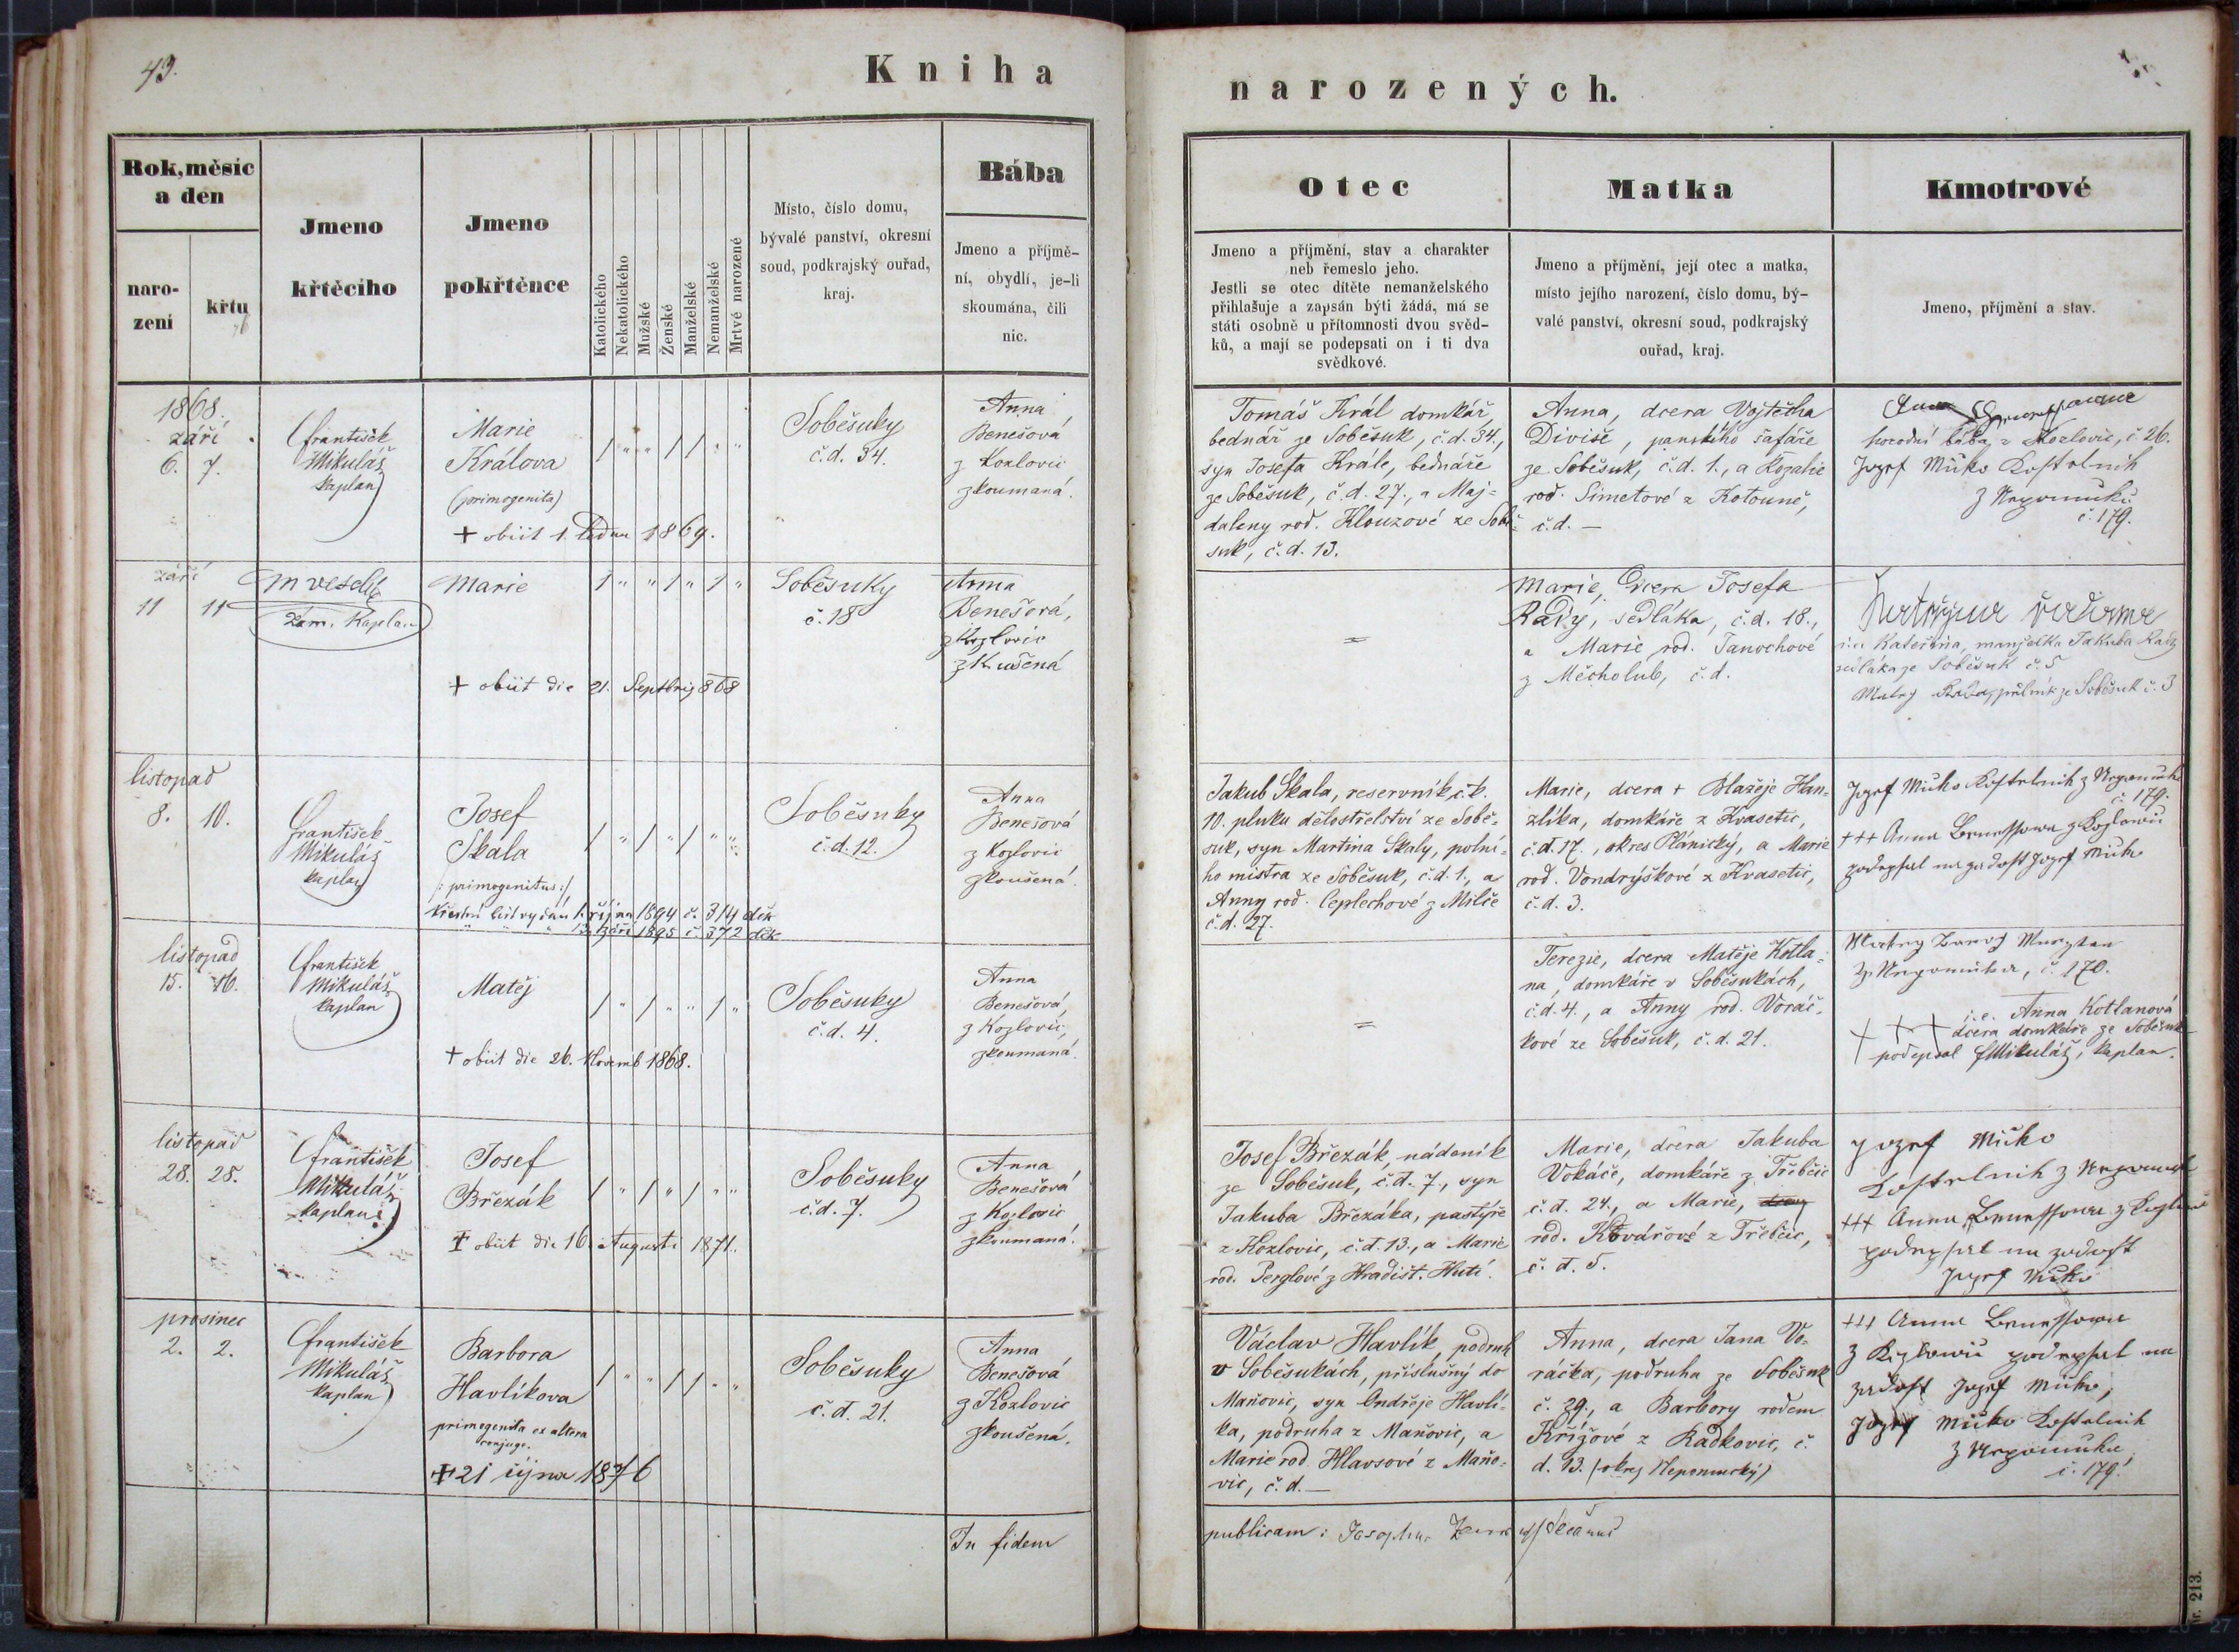 43.
Kniha
narozených.
Rok, měsíc
a den
naro-
zení
křtu
Jmeno
křtěcího
Jmeno
pokřtěnce
Katolického
Nekatolického
Mužské
Ženské
Manželské
Nemanželské
Mrtvé narozené
Místo, číslo domu,
bývalé panství, okresní
soud, podkrajský ouřad,
kraj.
Bába
Jmeno a příjmě-
ní, obydlí, je-li
skoumána, čili
nic.
Otec
Jmeno a příjmění, stav a charakter
neb řemeslo jeho.
Jestli se otec dítěte nemanželského
přihlašuje a zapsán býti žádá, má se
státi osobně u přítomnosti dvou svěd-
ků, a mají se podepsati on i ti dva
svědkové.
Matka
Jmeno a příjmění, její otec a matka,
místo jejího narození, číslo domu, bý-
valé panství, okresní soud, podkrajský
ouřad, kraj.
Kmotrové
Jmeno, příjmění a stav.
1868.
září
6. 7.
František
Mikuláš
kaplan
Marie
Králova
(primogenita)
+ obiit 1. ledna 1869.
/ " " / / " "
Soběsuky
č.d. 34.
Anna
Benešová,
z Kozlovic
zkoumaná.
Tomáš Král domkář,
bednář ze Soběsuk, č.d. 34.,
syn Josefa Krále, bednáře
ze Soběsuk, č.d. 27., a Maj=
daleny rod. Klouzové ze Sobě-
suk, č.d. 13.
Anna, dcera Vojtěcha
Diviše, panského šafáře
ze Soběsuk, č.d. 1., a Rozalie
rod. Šimetové z Kotouně,
č.d. —
Anna
porodní bába z Kozlovic, č. 26.
Jozef Mičko Kostelnik
z Nepomuku
č. 179.
září
11 11
M Veselý
zám. Kaplan
Marie
+ obiit die 21. Septbris 868
1 " " 1 " 1 "
Soběsuky
č. 18
Anna
Benešová,
z Kozlovic
zkušená
=
Marie, Dcera Josefa
Rady, sedláka, č.d. 18.,
a Marie rod. Janochové
z Měcholub, č.d.
i.e. Kateřina, manželka Jakuba Rady
sedláka ze Soběsuk č. 5
ze Soběsuk č. 3
listopad
8. 10.
František
Mikuláš
kaplan
Josef
Skala
/: primogenitus :/
Křestní list vydán 1. října 1894 č. 314 dět
" " " 13. září 1895 č. 372 dět
/ " / " / " "
Soběsuky
č.d. 12.
Anna
Benešová
z Kozlovic
zkoušená.
Jakub Skala, reservník c.k.
10. pluku dělostřelství ze Sobě-
suk, syn Martina Skaly, polní-
ho mistra ze Soběsuk, č.d. 1., a
Anny rod. Ceplechové z Milče
č.d. 27.
Marie, dcera + Blažeje Han=
zlíka, domkáře z Kvasetic,
č.d. 17., okres Plánický, a Marie
rod. Vondryškové z Kvasetic,
č.d. 3.
Jozef Mičko Kostelnik z Nepomuku
č. 179.
+++ Anna Benessowa z Kozlowic
podepsal na zadost Jozef Mičko
listopad
15. 16.
František
Mikuláš
kaplan
Matěj
+ obiit die 26. Novemb 1868.
/ " / " " / "
Soběsuky
č.d. 4.
Anna
Benešová,
z Kozlovic,
zkoumaná.
=
Terezie, dcera Matěje Kotla=
na, domkáře v Soběsukách,
č.d. 4., a Anny rod. Voráč-
kové ze Soběsuk, č.d. 21.
z Nepomuku, č. 170.
i.e. Anna Kotlanová
+ + + dcera domkáře ze Soběsuk
podepsal F Mikuláš, kaplan.
listopad
28. 28.
František
Mikuláš
kaplan
Josef
Březák
+ obiit die 16. Augusti 1871.
/ " / " / " "
Soběsuky
č.d. 7.
Anna
Benešová,
z Kozlovic
zkoumaná.
Josef Březák, nádeník
ze Soběsuk, č.d. 7., syn
Jakuba Březáka, pastýře
z Kozlovic, č.d. 13., a Marie
rod. Perglové z Hradišt. Hutí.
Marie, dcera Jakuba
Vokáče, domkáře z Třebčic
č.d. 24., a Marie,
rod. Kovářové z Třebčic,
č.d. 5.
Jozef Mičko
Kostelnik z Nepomuk
+++ Anna Benessowa z Kozlowic
podepsal na zadost
Jozef Mičko
prosinec
2. 2.
František
Mikuláš
kaplan
Barbora
Havlíkova
primogenita ex altera
conjuge.
+ 21 října 1876
/ " " / / " "
Soběsuky
č.d. 21.
Anna
Benešová
z Kozlovic
zkoušená.
Václav Havlík, podruh
v Soběsukách, příslušný do
Maňovic, syn Ondřeje Havlí-
ka, podruha z Maňovic, a
Marie rod. Hlavsové z Maňo-
vic, č.d. —
Anna, dcera Jana Vo-
ráčka, podruha ze Soběsuk
č. 29., a Barbory rodem
Křížové z Radkovic, č.
d. 13. (okres Nepomucký)
+++ Anna Benessowa
z Kozlowic podepsal na
zadost Jozef Mičko,
Jozef Mičko Kostelnik
z Nepomuku
č. 179.
In fidem
publicam: Josephus děcanus
Nr. 213.